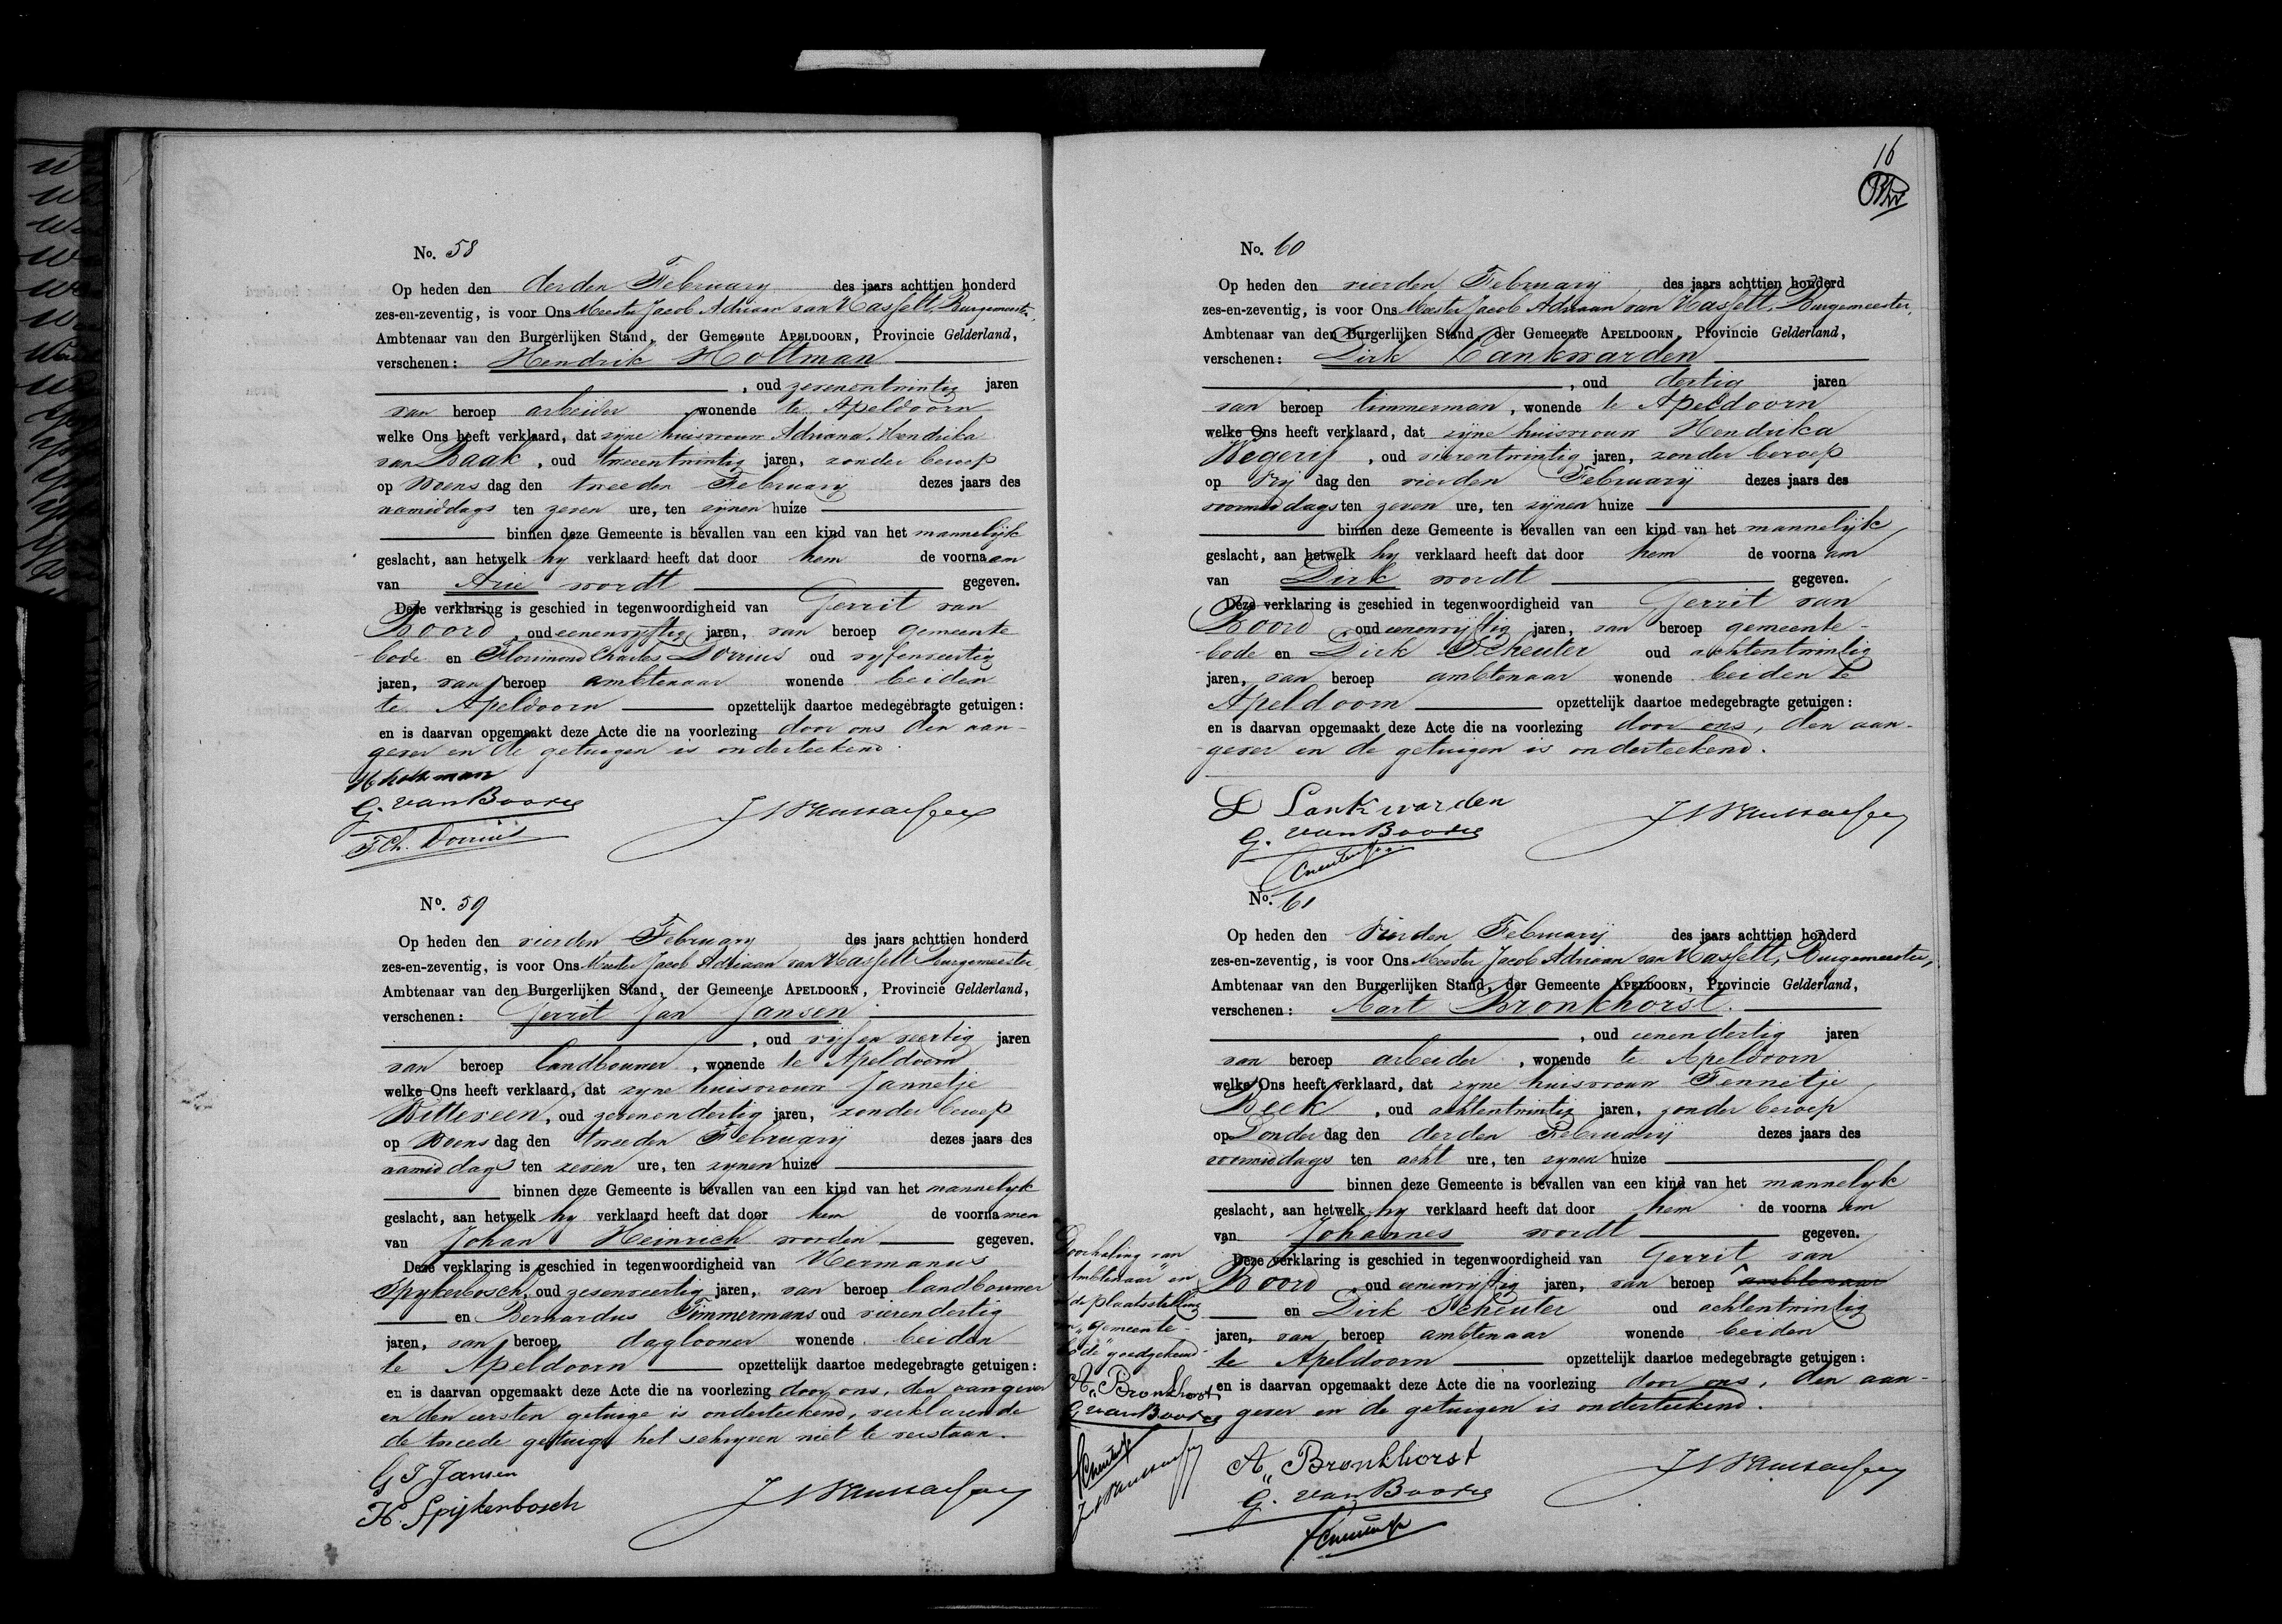 No. 58
Op heden den derden February des jaars achttien honderd
zes-en-zeventig, is voor Ons Meester Jacob Adriaan van Hasselt, Burgemeester,
Ambtenaar van den Burgerlijken Stand, der Gemeente APELDOORN, Provincie Gelderland,
verschenen: Hendrik Holtman
, oud zevenentwintig jaren
van beroep arbeider wonende te Apeldoorn
welke Ons heeft verklaard, dat zijne huisvrouw Adriana Hendrika
van Baak, oud tweeentwintig jaren, zonder beroep
op Woens dag den tweeden February dezes jaars des
namiddags ten zeven ure, ten zijnen huize
binnen deze Gemeente is bevallen van een kind van het mannelijk
geslacht, aan hetwelk hy verklaard heeft dat door hem de voornaam
van Arie wordt gegeven.
Deze verklaring is geschied in tegenwoordigheid van Gerrit van
Boord, oud eenenvijftig jaren, van beroep gemeente
bode en Florimond Charles Dorrius oud vyfenveertig
jaren, van beroep ambtenaar wonende beiden
te Apeldoorn opzettelijk daartoe medegebragte getuigen:
en is daarvan opgemaakt deze Acte die na voorlezing door ons den aan-
gever en de getuigen is onderteekend.
H holtman
G. van Boord
F Ch. Dorrius
No. 59
Op heden den vierden February des jaars achttien honderd
zes-en-zeventig, is voor Ons Meester Jacob Adriaan van Hasselt Burgemeester
Ambtenaar van den Burgerlijken Stand, der Gemeente APELDOORN, Provincie Gelderland,
verschenen: Gerrit Jan Jansen
, oud vijfenveertig jaren
van beroep landbouwer, wonende te Apeldoorn
welke Ons heeft verklaard, dat zyne huisvrouw Jannetje
Witteveen, oud zevenendertig jaren, zonder beroep
op Woens dag den tweeden February dezes jaars des
namiddags ten zeven ure, ten zynen huize
binnen deze Gemeente is bevallen van een kind van het mannelyk
geslacht, aan hetwelk hy verklaard heeft dat door hem de voornamen
van Johan Heinrich worden gegeven.
Deze verklaring is geschied in tegenwoordigheid van Hermanus
Spykerbosch, oud zesenveertig jaren, van beroep landbouwer
en Bernardus Timmermans oud vierendertig
jaren, van beroep daglooner wonende beiden
te Apeldoorn opzettelijk daartoe medegebragte getuigen:
en is daarvan opgemaakt deze Acte die na voorlezing door ons, den aangever
en den eersten getuige is onderteekend, verklarende
de tweede getuige het schryven niet te verstaan.
G J Jansen
H. Spijkerbosch
16
No. 60
Op heden den vierden February des jaars achttien honderd
zes-en-zeventig, is voor Ons Meester Jacob Adriaan van Hasselt, Burgemeester,
Ambtenaar van den Burgerlijken Stand, der Gemeente APELDOORN, Provincie Gelderland,
verschenen: Dirk Lankwarden
, oud dertig jaren
van beroep timmerman, wonende te Apeldoorn
welke Ons heeft verklaard, dat zyne huisvrouw Hendrika
Wegerif, oud vierentwintig jaren, zonder beroep
op Vrij dag den vierden February dezes jaars des
voormiddags ten zeven ure, ten zijnen huize
binnen deze Gemeente is bevallen van een kind van het mannelijk
geslacht, aan hetwelk hy verklaard heeft dat door hem de voornaam
van Dirk wordt gegeven.
Deze verklaring is geschied in tegenwoordigheid van Gerrit van
Boord, oud eenenvyftig jaren, van beroep gemeente-
bode en Dirk Scheuter oud achtentwintig
jaren, van beroep ambtenaar wonende beiden te
Apeldoorn opzettelijk daartoe medegebragte getuigen:
en is daarvan opgemaakt deze Acte die na voorlezing door ons, den aan-
gever en de getuigen is onderteekend.
D Lankwarden
G. van Boord
No. 61
Op heden den Vierden February des jaars achttien honderd
zes-en-zeventig, is voor Ons Meester Jacob Adriaan van Hasselt, Burgemeester,
Ambtenaar van den Burgerlijken Stand, der Gemeente APELDOORN, Provincie Gelderland,
verschenen: Aart Bronkhorst
, oud eenendertig jaren
van beroep arbeider, wonende te Apeldoorn
welke Ons heeft verklaard, dat zyne huisvrouw Tennetje
Beek, oud achtentwintig jaren, zonder beroep
op Donder dag den derden February dezes jaars des
voormiddags ten acht ure, ten zynen huize
binnen deze Gemeente is bevallen van een kind van het mannelyk
geslacht, aan hetwelk hy verklaard heeft dat door hem de voornaam
van Johannes wordt gegeven.
Deze verklaring is geschied in tegenwoordigheid van Gerrit van
Boord, oud eenenvyftig jaren, van beroep ambtenaar
en Dirk Scheuter oud achtentwintig
jaren, van beroep ambtenaar wonende beiden
te Apeldoorn opzettelijk daartoe medegebragte getuigen:
en is daarvan opgemaakt deze Acte die na voorlezing door ons, den aan-
gever en de getuigen is onderteekend.
Doorhaling van
"Ambtenaar" en
de plaatsstelling
"gemeente-
bode" goedgekeurd
A. Bronkhorst
G van Boord
A. Bronkhorst
G. van Boord